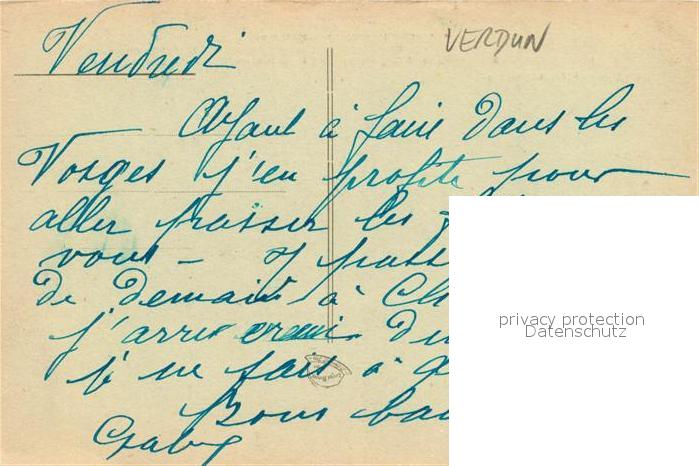 Vendredi
VERDUN
Ayant à faire dans les
Vosges j'en profite pour
aller passer les
vous -
de demain à Ch
j'arriverai
je ne sais à
Bons bai
Gaby
privacy protection
Datenschutz